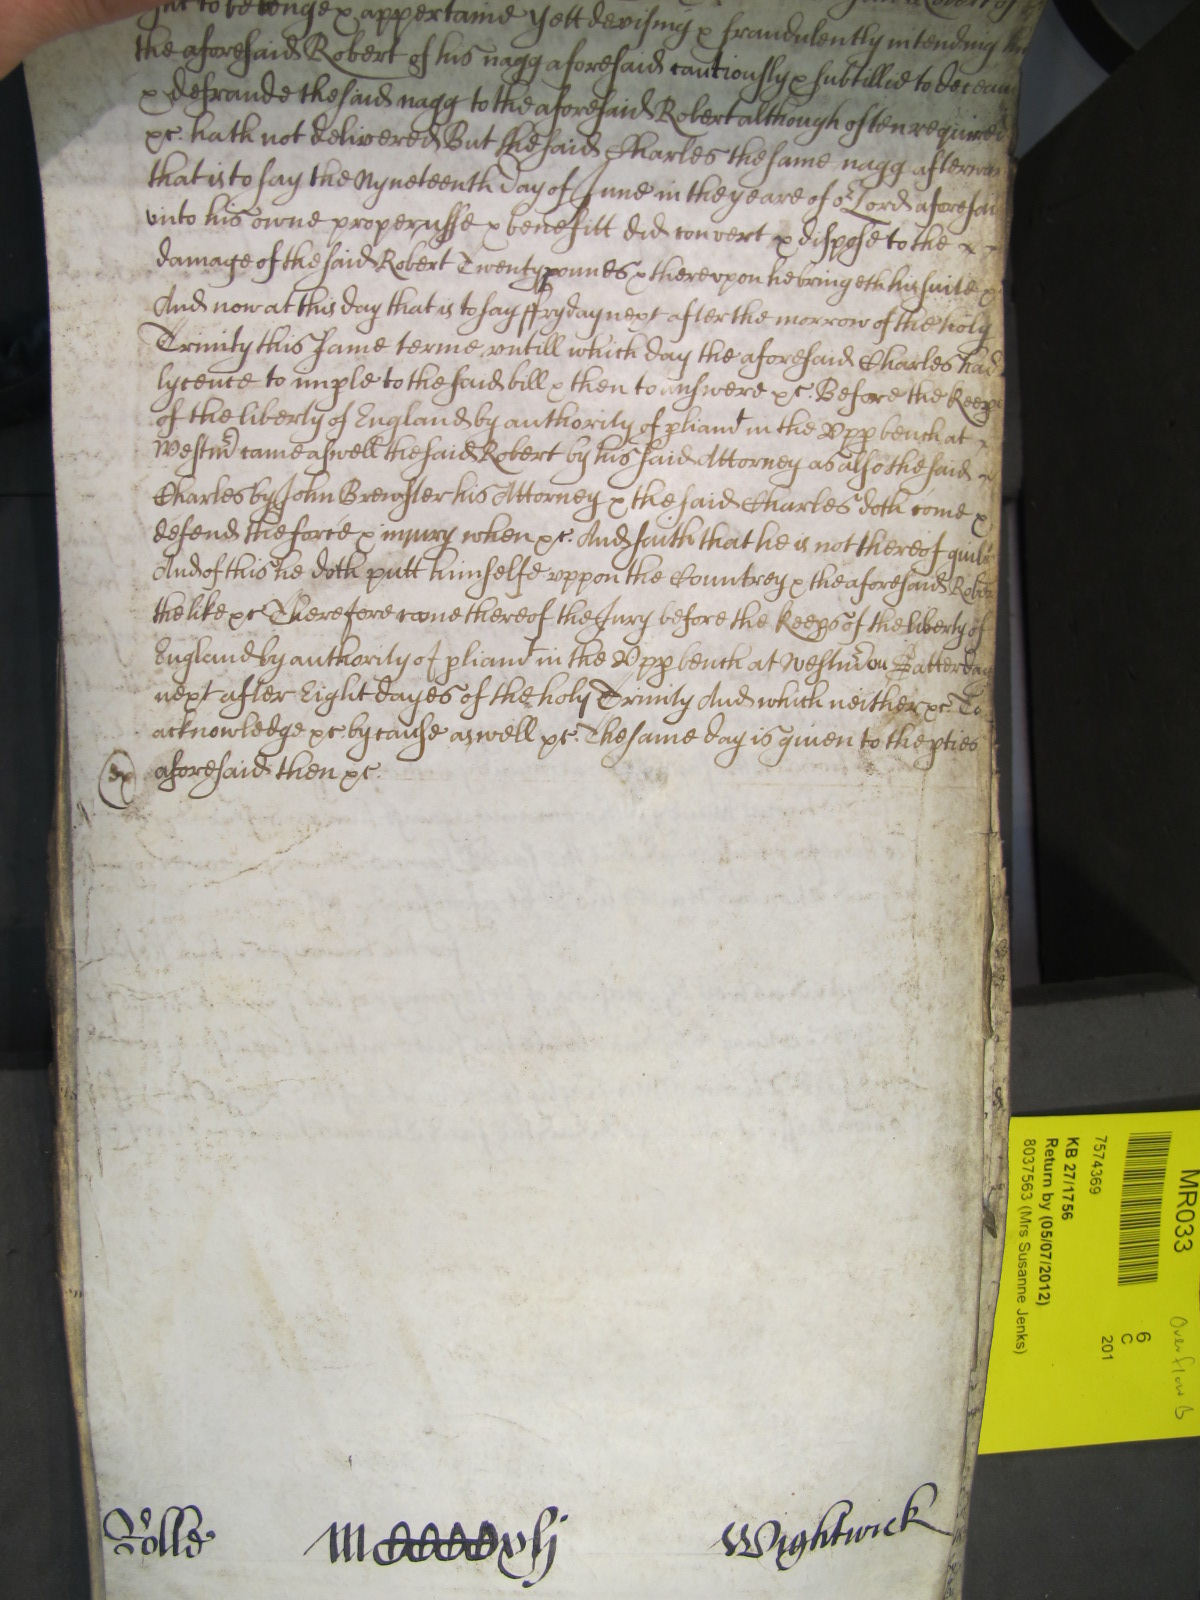 to belonge & appertaine yett devising & fraudulently intending
the aforesaid Robert of his nagg aforesaid cautiously & subtillie to deceave
& defraude the said nagg to the aforesaid Robert although often required
&c. hath not delivered But the said Charles the same nagg afterw
that is to say the Nyneteenth day of June in the yeare of or Lord aforesai
unto his owne proper usse & benefitt did convert & dispose to the
damage of the said Robert Twenty pounes & thereupon he bringeth his suite &
And now at this day that is to say ffryday next after the morrow of the holy
Trinity this same terme untill which day the aforesaid Charles had
lycence to imple to the said bill & then to answere &c. Before the Keeps
of the liberty of England by authority of pliamt in the Upp bench at
Westmr came aswell the said Robert by his said Attorney as also the said
Charles by John Brewster his Attorney & the said Charles doth come &
defend the force & injury when &c. And saith that he is not thereof guilt
And of this he doth putt himselfe uppon the Countrey & the aforesaid Robe
the like &c Therefore come thereof the Jury before the Keeps of the liberty of
England by authority of pliamt in the Upp bench at Westmr on Satterday
next after Eight dayes of the holy Trinity And which neither &c To
acknowledge &c by cause aswell &c. The same day is given to the pties
ex aforesaid then &c.
Rolle Wightwick
MR033
Overflow B
6
C
201
7574369
KB 27/1756
Return by (05/07/2012)
8037563 (Mrs Susanne Jenks)